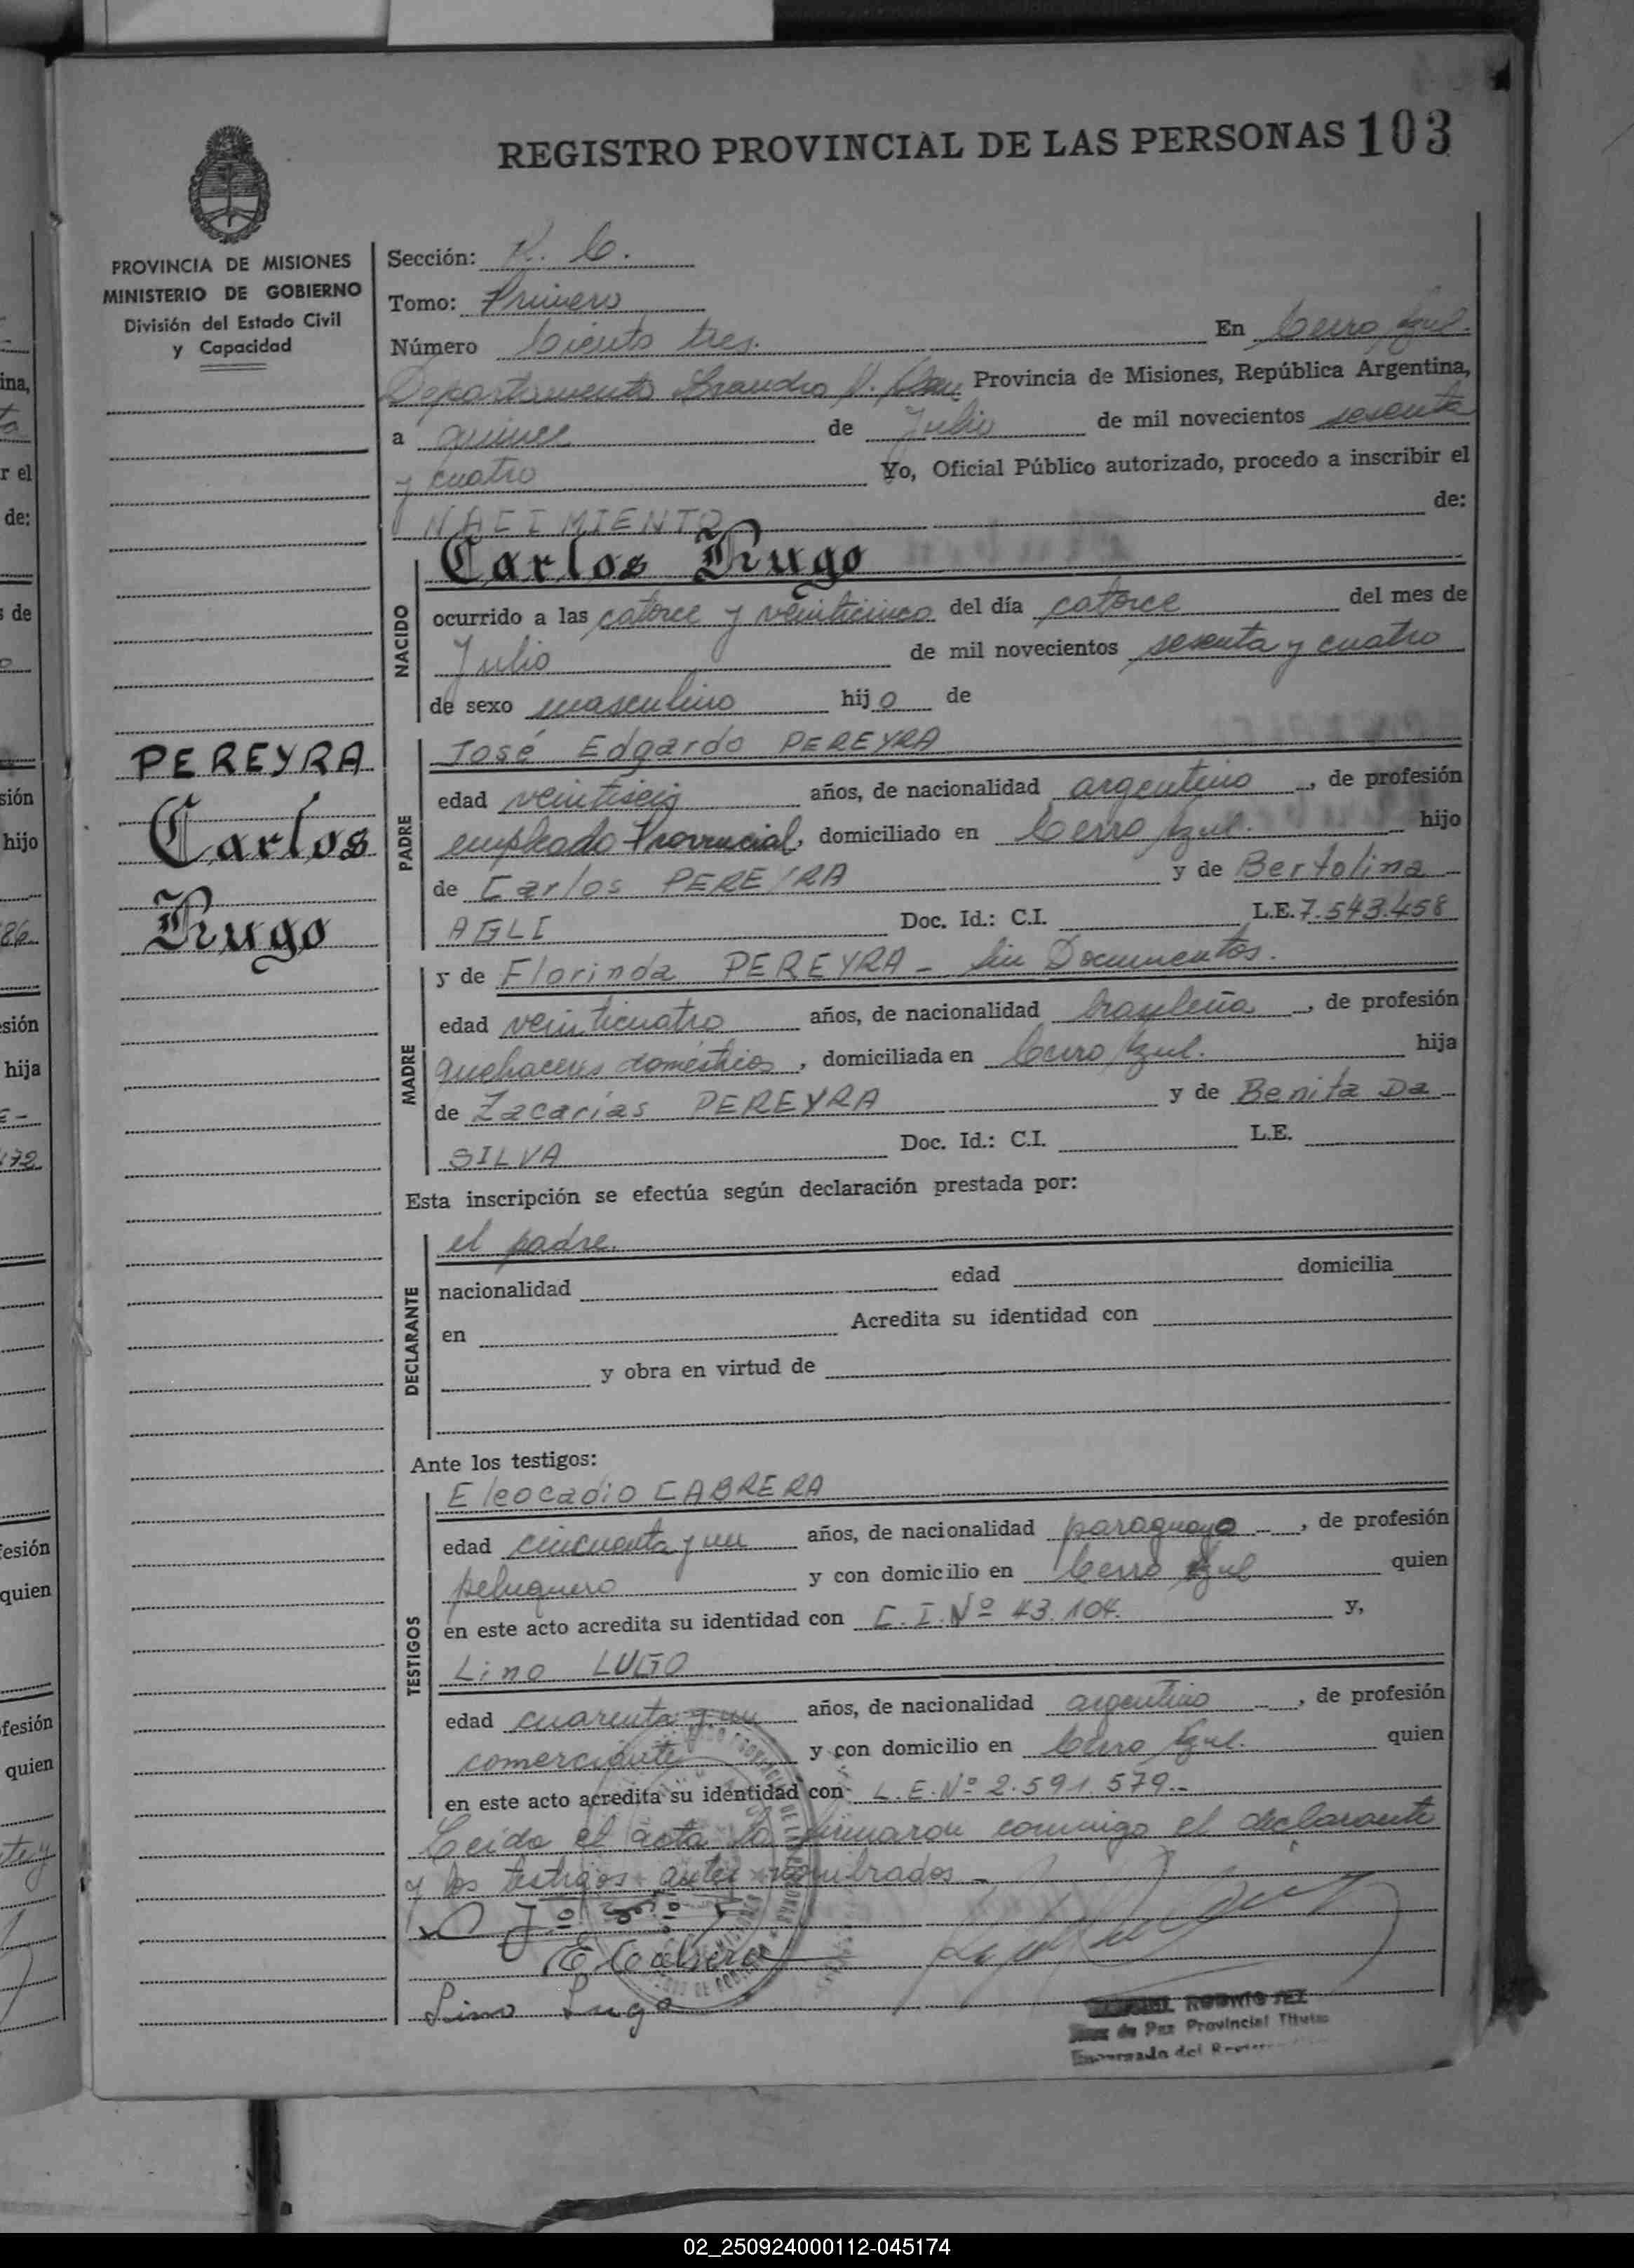 REGISTRO PROVINCIAL DE LAS PERSONAS 103
PROVINCIA DE MISIONES
MINISTERIO DE GOBIERNO
División del Estado Civil
y Capacidad
PEREYRA
Carlos
Hugo
Sección:
Tomo: Primero
Número Ciento tres. En Cerro Azul.
Departamento Leandro N. Alem Provincia de Misiones, República Argentina,
a quince de Julio de mil novecientos sesenta
y cuatro Yo, Oficial Público autorizado, procedo a inscribir el
NACIMIENTO de:
NACIDO
Carlos Hugo
ocurrido a las catorce y veinticinco del día catorce del mes de
Julio de mil novecientos sesenta y cuatro
de sexo masculino hijo de
PADRE
José Edgardo PEREYRA
edad veintiseis años, de nacionalidad argentino, de profesión
empleado Provincial, domiciliado en Cerro Azul. hijo
de Carlos PEREYRA y de Bertolina
AGLI Doc. Id.: C.I. L.E. 7.543.458
MADRE
y de Florinda PEREYRA - Sin Documentos.
edad veinticuatro años, de nacionalidad brasileña, de profesión
quehaceres domésticos, domiciliada en Cerro Azul. hija
de Zacarías PEREYRA y de Benita Da
SILVA Doc. Id.: C.I. L.E.
Esta inscripción se efectúa según declaración prestada por:
DECLARANTE
el padre.
nacionalidad edad domicilia
en Acredita su identidad con
y obra en virtud de
Ante los testigos:
TESTIGOS
Eleocadio CABRERA
edad cincuenta y un años, de nacionalidad paraguayo, de profesión
peluquero y con domicilio en Cerro Azul quien
en este acto acredita su identidad con C.I. Nº 43.104. y,
Lino LUGO
edad cuarenta y un años, de nacionalidad argentino, de profesión
comerciante y con domicilio en Cerro Azul. quien
en este acto acredita su identidad con L.E. Nº 2.591.579.-
Leido el acta la firmaron conmigo el declarante
y los testigos antes nombrados -
E Cabrera
Lino Lugo
RODRIGUEZ
Juez de Paz Provincial Titular
Encargado del
ina,
r el
de:
s de
sión
hijo
86
esión
hija
172
fesión
quien
fesión
quien
02_250924000112-045174